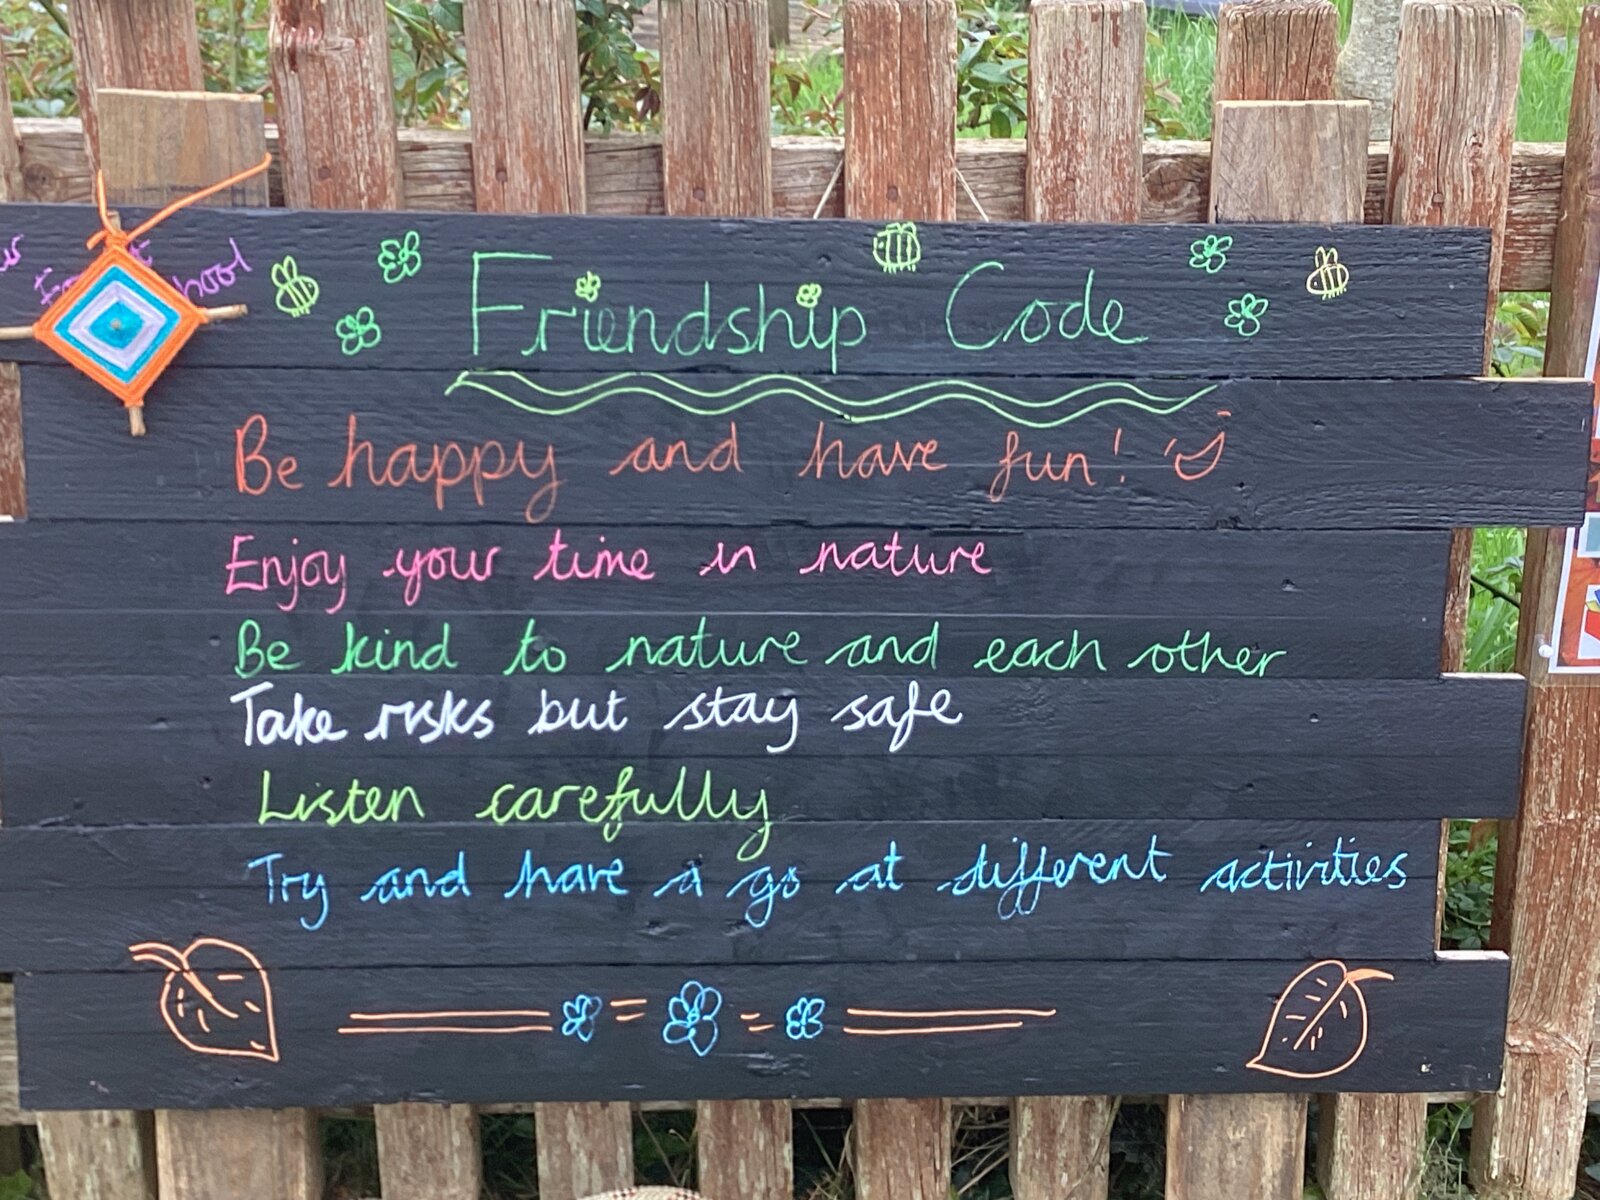 Friendship Code
Be happy and have fun!
Enjoy your time in nature
Be kind to nature and each other
Take risks but stay safe
Listen carefully
Try and have a go at different activities